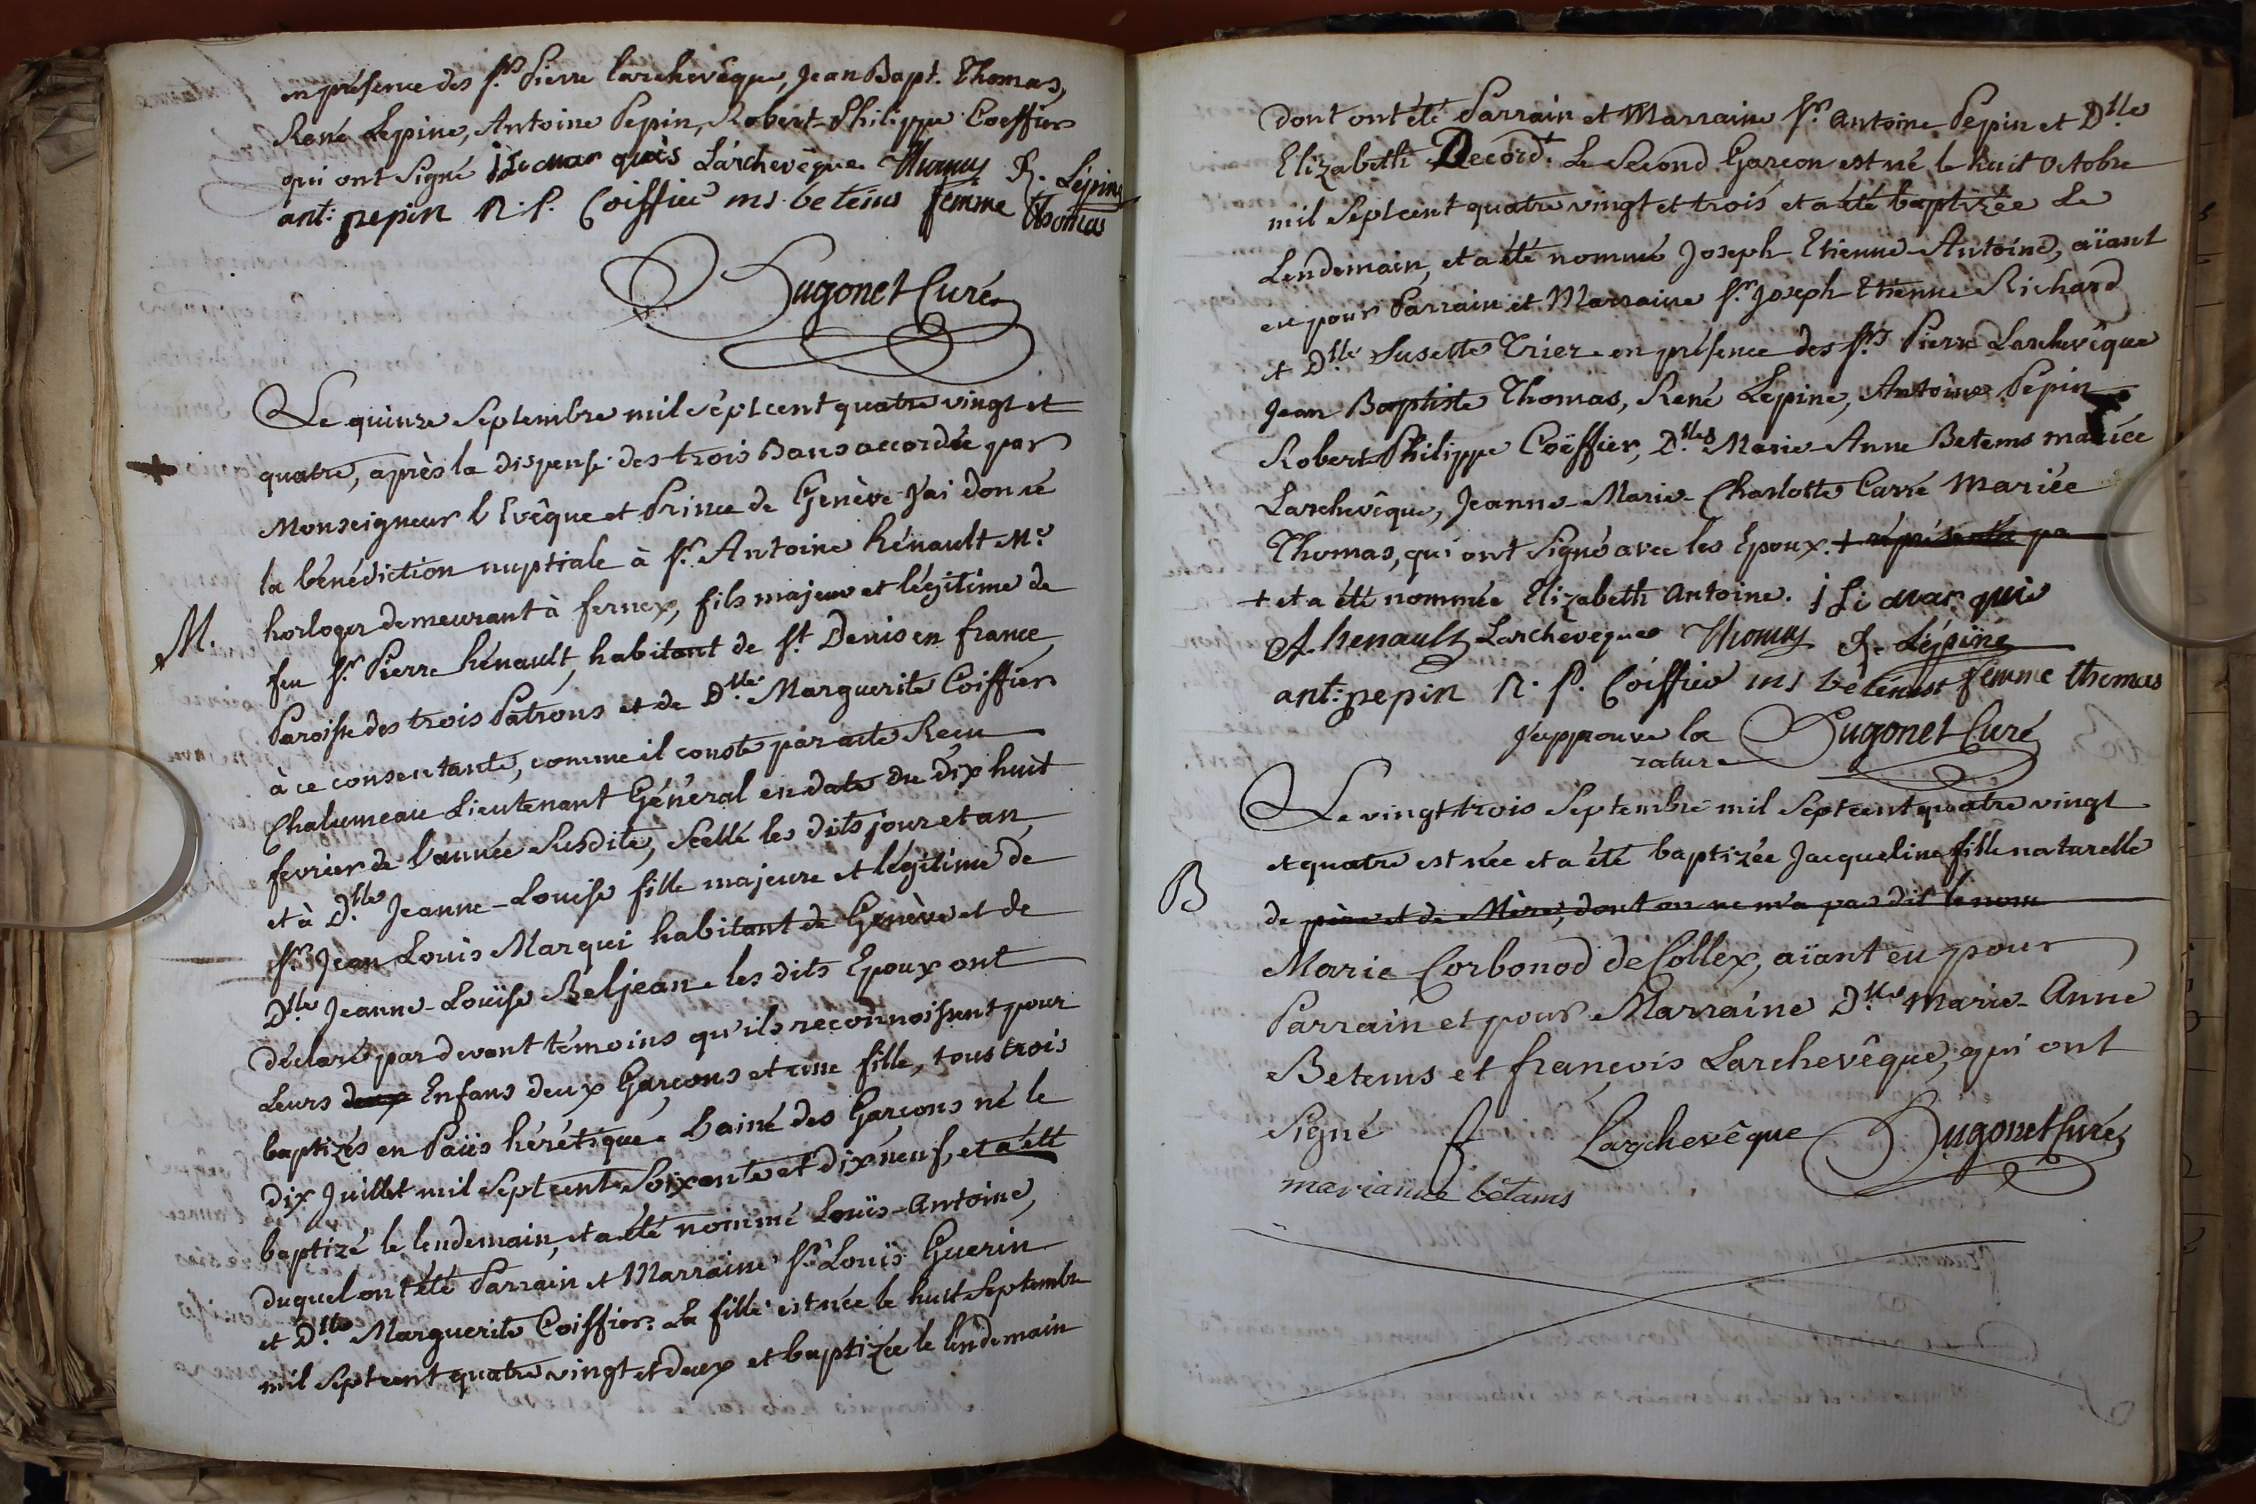 en présence des Srs Pierre Larchevêque, Jean Bapt. Thomas,
René Lepine, Antoine Pepin, Robert-Philippe Coeffier
qui ont signé Larchevêque Thomas R. Lépine
ant: pepin R. P. Coiffier femme Thomas
Dugonet Curé
Le quinze Septembre mil sept cent quatre vingt et
quatre, après la dispense des trois Bans accordée par
Monseigneur l'Evêque et Prince de Genève j'ai donné
la bénédiction nuptiale à Sr. Antoine hénault Me.
M. horloger demeurant à fernex, fils majeur et légitime de
feu Sr. Pierre hénault, habitant de St. Denis en france,
Paroisse des trois Patrons et de Dlle. Marguerite Coiffier
à ce consentante, comme il conste par acte Recu
Chalumeau Lieutenant Général en date du dix huit
fevrier de l'année susdite, scellé les dits jour et an,
et à Dlle Jeanne-Louise fille majeure et légitime de
Sr. Jean Louis Marqui habitant de Genève et de
Dlle Jeanne-Louise Beljean. les dits Epoux ont
déclaré par devant témoins qu'ils reconnoissent pour
Leurs deux Enfans deux Garçons et une fille, tous trois
baptizés en Païis hérétique. L'ainé des Garçons né le
dix Juillet mil sept cent soixante et dix neuf, et a été
baptizé le lendemain, et a été nommé Louis-Antoine,
duquel ont été Parrain et Marraine Sr. Louïs Guerin
et Dlle Marguerite Coiffier. La fille est née le huit Septembre
mil sept cent quatre vingt et deux et baptizée le lendemain
dont ont été Parrain et Marraine Sr. Antoine Pepin et Dlle
Elizabeth Record. Le Second Garcon est né le huit Octobre
mil Sept cent quatre vingt et trois et a été baptizée Le
Lendemain, et a été nommé Joseph Etienne Antoine, aïant
eu pour Parrain et Marraine Sr. Joseph Etienne Richard
et Dlle Susette Trier en présence des Srs Pierre Larchevêque
Jean Baptiste Thomas, René Lepine, Antoine Pepin
Robert-Philippe Coëffier, Dlles Marie-Anne Betems mariée
Larchevêque, Jeanne-Marie-Charlotte Carré Mariée
Thomas, qui ont signé avec les Epoux. + réprésentée pa
+ et a été nommée Elizabeth Antoine.
A. henault Larchevêque Thomas R. Lépine
ant: pepin R. P. Coiffier femme thomas
J'approuve la Dugonet Curé
rature
Le vingt trois Septembre mil Sept cent quatre vingt
et quatre est née et a été baptizée Jacqueline fille naturelle
B de père et de Mère, dont on ne m'a pas dit le nom
Marie Corbonod de Collex, aïant eu pour
Parrain et pour Marraine Dlle Marie-Anne
Betems et françois Larchevêque, qui ont
signé f Larchevêque Dugonet Curé
marianne bétams